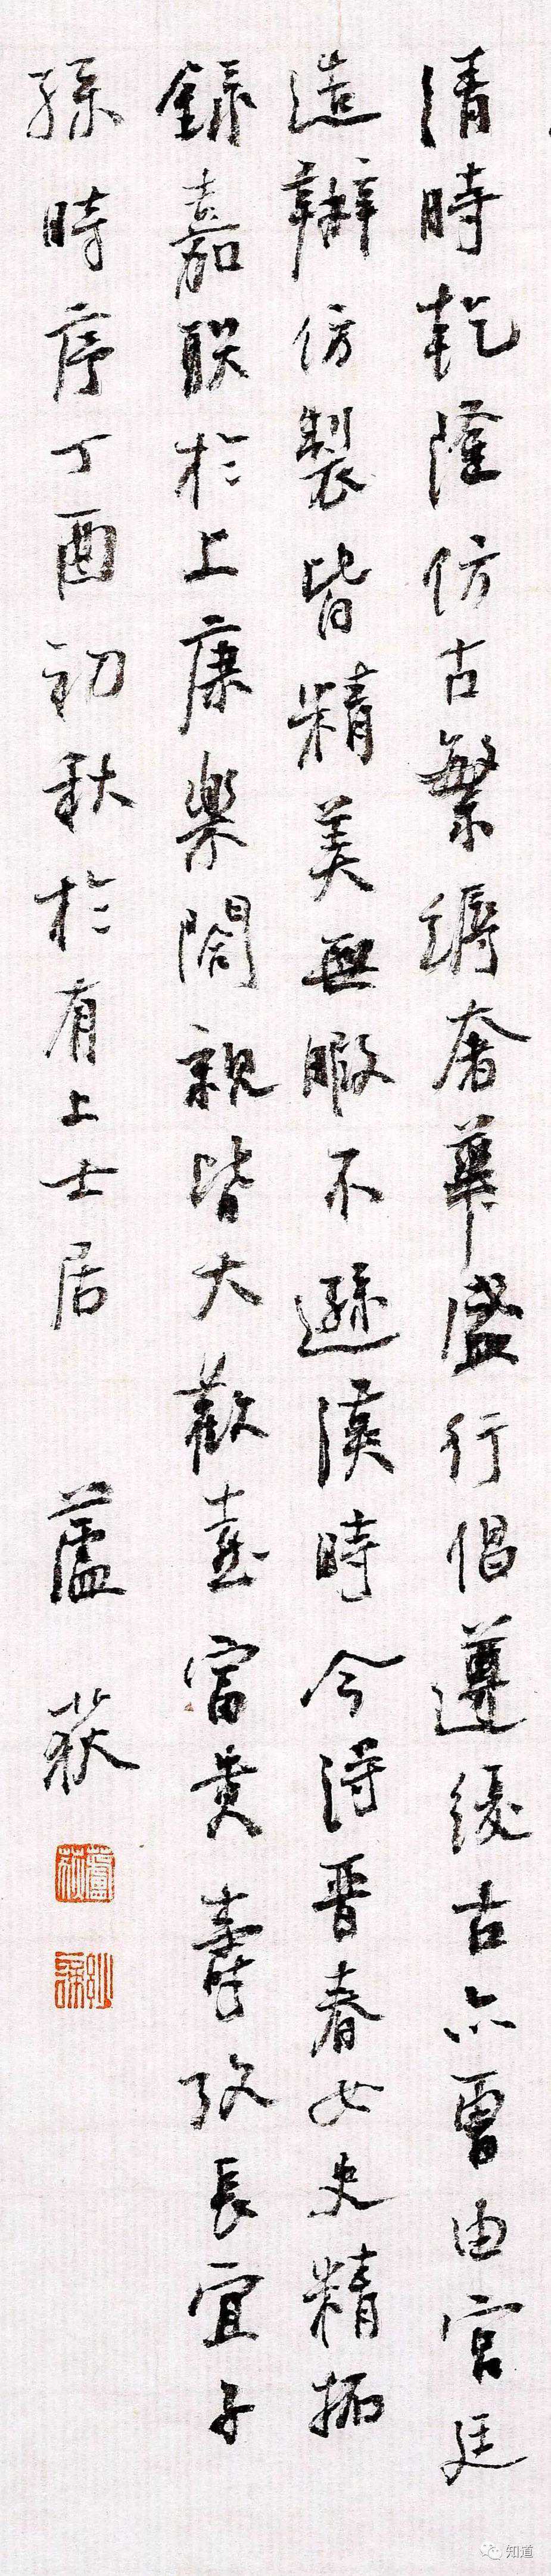 清時乾隆仿古繁縟奢華盛行倡遵緩古亦曾由宮廷
造辦仿製皆精美無暇不遜漢時今得晋春女史精拓
錄嘉联於上康樂閤親皆大歡喜富貴壽攷長宜子
孫時序丁酉初秋於有上士居
蘆荻
知道